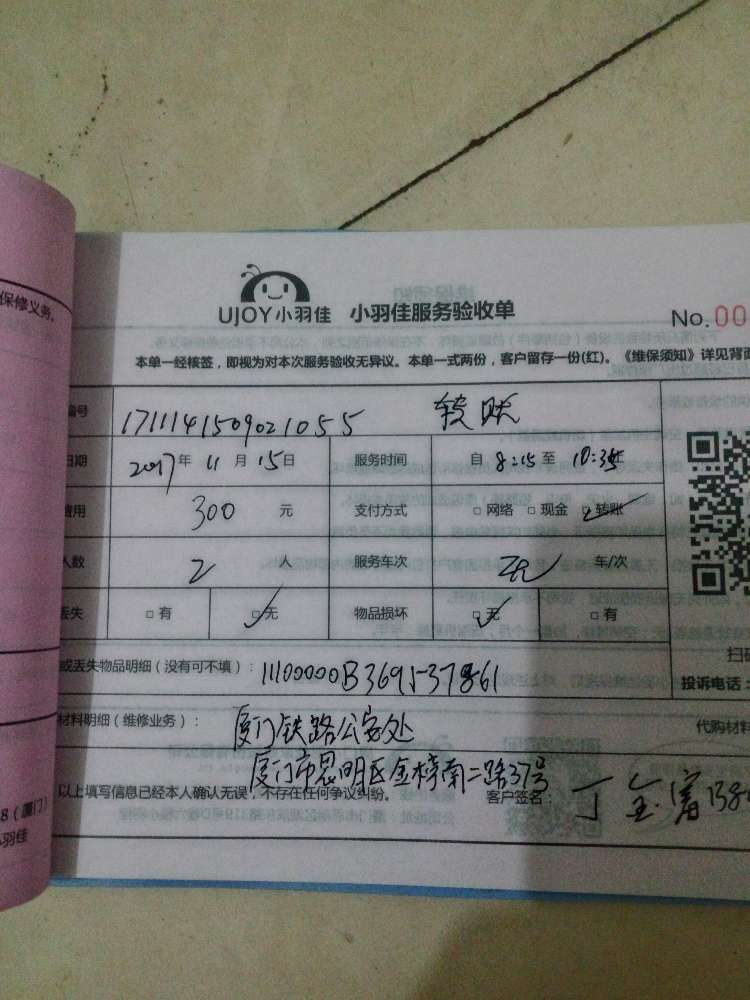 保修义务。
UJOY小羽佳 小羽佳服务验收单
No.00
本单一经核签，即视为对本次服务验收无异议。本单一式两份，客户留存一份(红)。《维保须知》详见背面
编号 1711141509021055 转账
日期 2017年 11月 15日 服务时间 自 8:15 至 10:35
费用 300 元 支付方式 □网络 □现金 □转账
人数 2 人 服务车次 无 车/次
丢失 □有 □无 物品损坏 □无 □有
扫码
或丢失物品明细（没有可不填）： 11100000B369537861
投诉电话：
材料明细（维修业务）： 厦门铁路公安处
代购材料
厦门市思明区金榜南二路37号
以上填写信息已经本人确认无误，不存在任何争议纠纷。 客户签名： 丁金富
8（厦门）
小羽佳